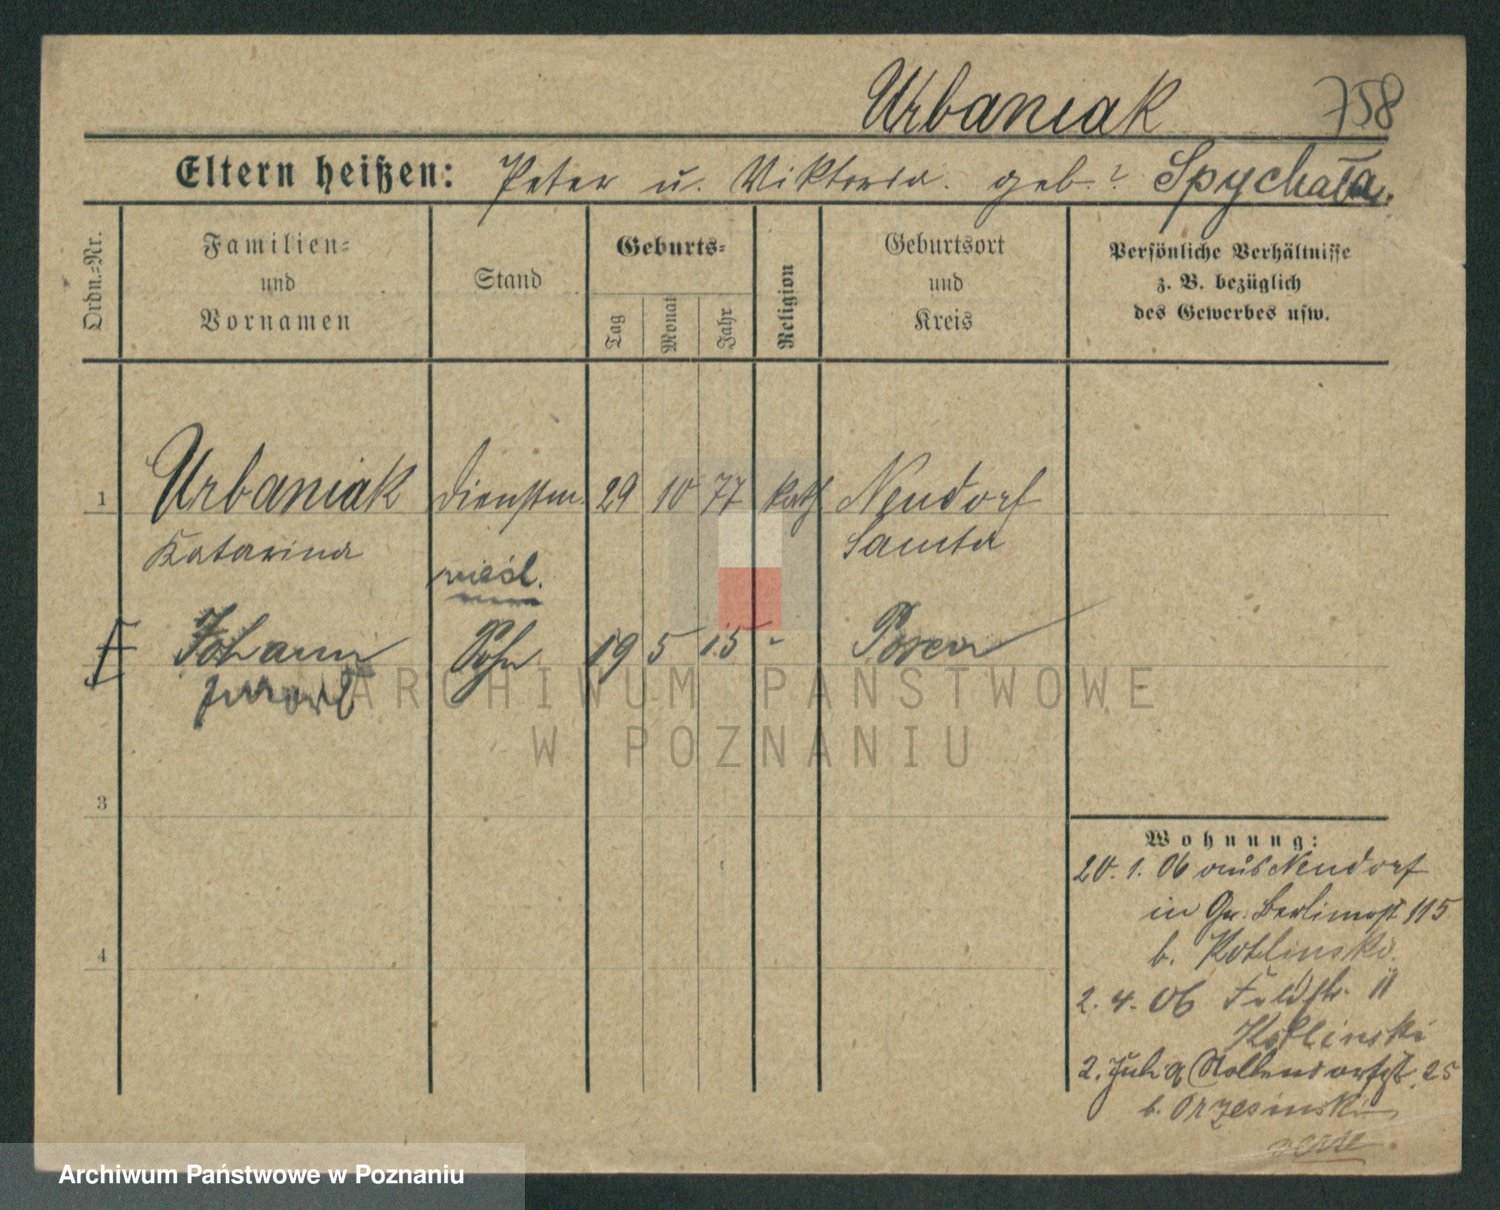 Urbaniak 758
Eltern heißen: Peter u. Viktoria geb. Spychała.
Ordn.-Nr.
Familien-
und
Vornamen
Stand
Geburts-
Tag
Monat
Jahr
Religion
Geburtsort
und
Kreis
Persönliche Verhältnisse
z. B. bezüglich
des Gewerbes usw.
1 Urbaniak Dienstm. 29 10 77 kath Neudorf
Katarina Samter
Johann Sohn 19 5 15 - Posen
ARCHIWUM PAŃSTWOWE
W POZNANIU
3
4
Wohnung:
20. 1. 06 aus Neudorf
in Gr. Berlinerstr 115
b. Kotlinski.
2. 4. 06 Feldstr. 11
Kotlinski
2. Juli 9 Nollendorfstr. 25
b. Orzesinski
Archiwum Państwowe w Poznaniu